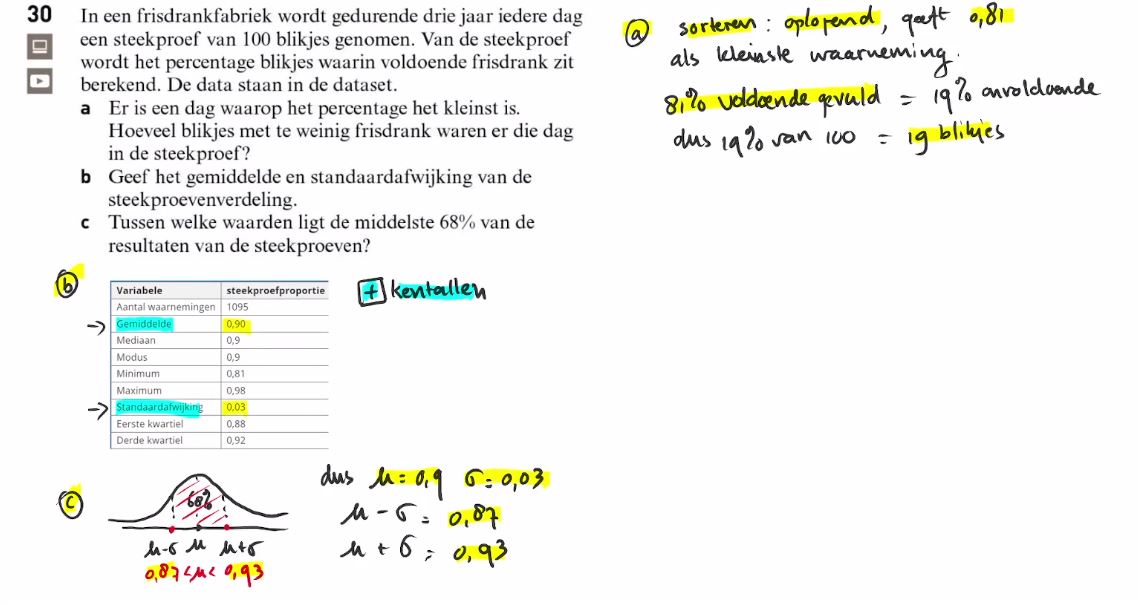 30 In een frisdrankfabriek wordt gedurende drie jaar iedere dag
een steekproef van 100 blikjes genomen. Van de steekproef
wordt het percentage blikjes waarin voldoende frisdrank zit
berekend. De data staan in de dataset.
a Er is een dag waarop het percentage het kleinst is.
Hoeveel blikjes met te weinig frisdrank waren er die dag
in de steekproef?
b Geef het gemiddelde en standaardafwijking van de
steekproevenverdeling.
c Tussen welke waarden ligt de middelste 68% van de
resultaten van de steekproeven?
a sorteren : oplopend, geeft 0,81
als kleinste waarneming.
81% voldoende gevuld = 19% onvoldoende
dus 19% van 100 = 19 blikjes
b
Variabele steekproefproportie
Aantal waarnemingen 1095
→ Gemiddelde 0,90
Mediaan 0,9
Modus 0,9
Minimum 0,81
Maximum 0,98
→ Standaardafwijking 0,03
Eerste kwartiel 0,88
Derde kwartiel 0,92
+ kentallen
c
68%
μ-σ μ μ+σ
0,87 < μ < 0,93
dus μ = 0,9 σ = 0,03
μ - σ = 0,87
μ + σ = 0,93